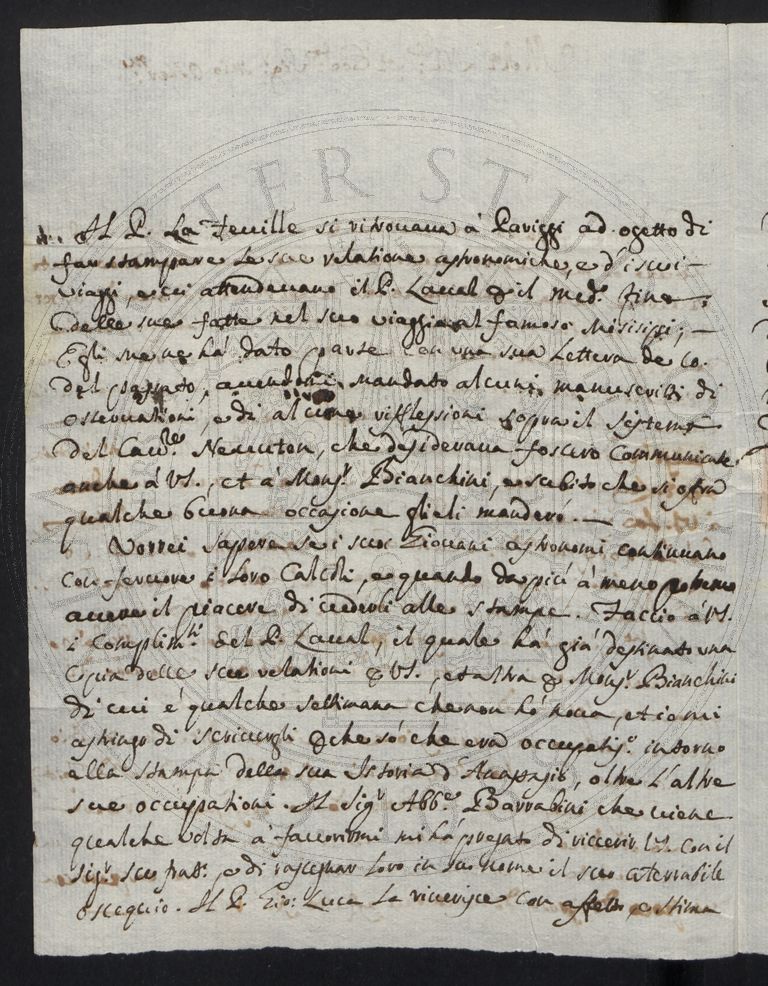 Il P. La Feuille si ritrovava à Pariggi ad ogetto di
far stampare le sue relationi astronomiche, e d'i suoi
viaggi, e ivi attendevano il P. Laval p il med.º fine
delle sue fatte nel suo viaggio al famoso Misisipi;
Egli me ne hà dato parte con una sua lettera de 20.
del passato, avendomi mandato alcuni manuscritti di
osservationi, e di alcune rifflessioni sopra il sistema
del Cav.re Neuuton, che desiderava fossero Communicate
anche à VS., et à Mons.r Bianchini, e subito che si offra
qualche buona occasione glieli manderò.
Vorrei sapere se i suoi Giovani astronomi continuano
con fervore i loro Calcoli, e quando da più à meno potremo
avere il piacere di vederli alle stampe. Faccio à VS.
i Complim.ti del P. Laval, il quale hà già destinato una
Copia delle sue relationi p VS., et altra p Mons.r Bianchini
di cui è qualche settimana che non hò nova, et io mi
astringo di scrivergli p che sò che era occupatis.º intorno
alla stampa della sua Istoria d'Anastasio, oltre l'altre
sue occupationi. Il Sig.r Abb.e Barrabini che viene
qualche volta à favorirmi mi hà pregato di riverir VS. con il
sig.r suo frat.º, e di rassegnar loro in suo nome il suo
ossequio. Il P. Gio: Luca La riverisce con affetto, e stima